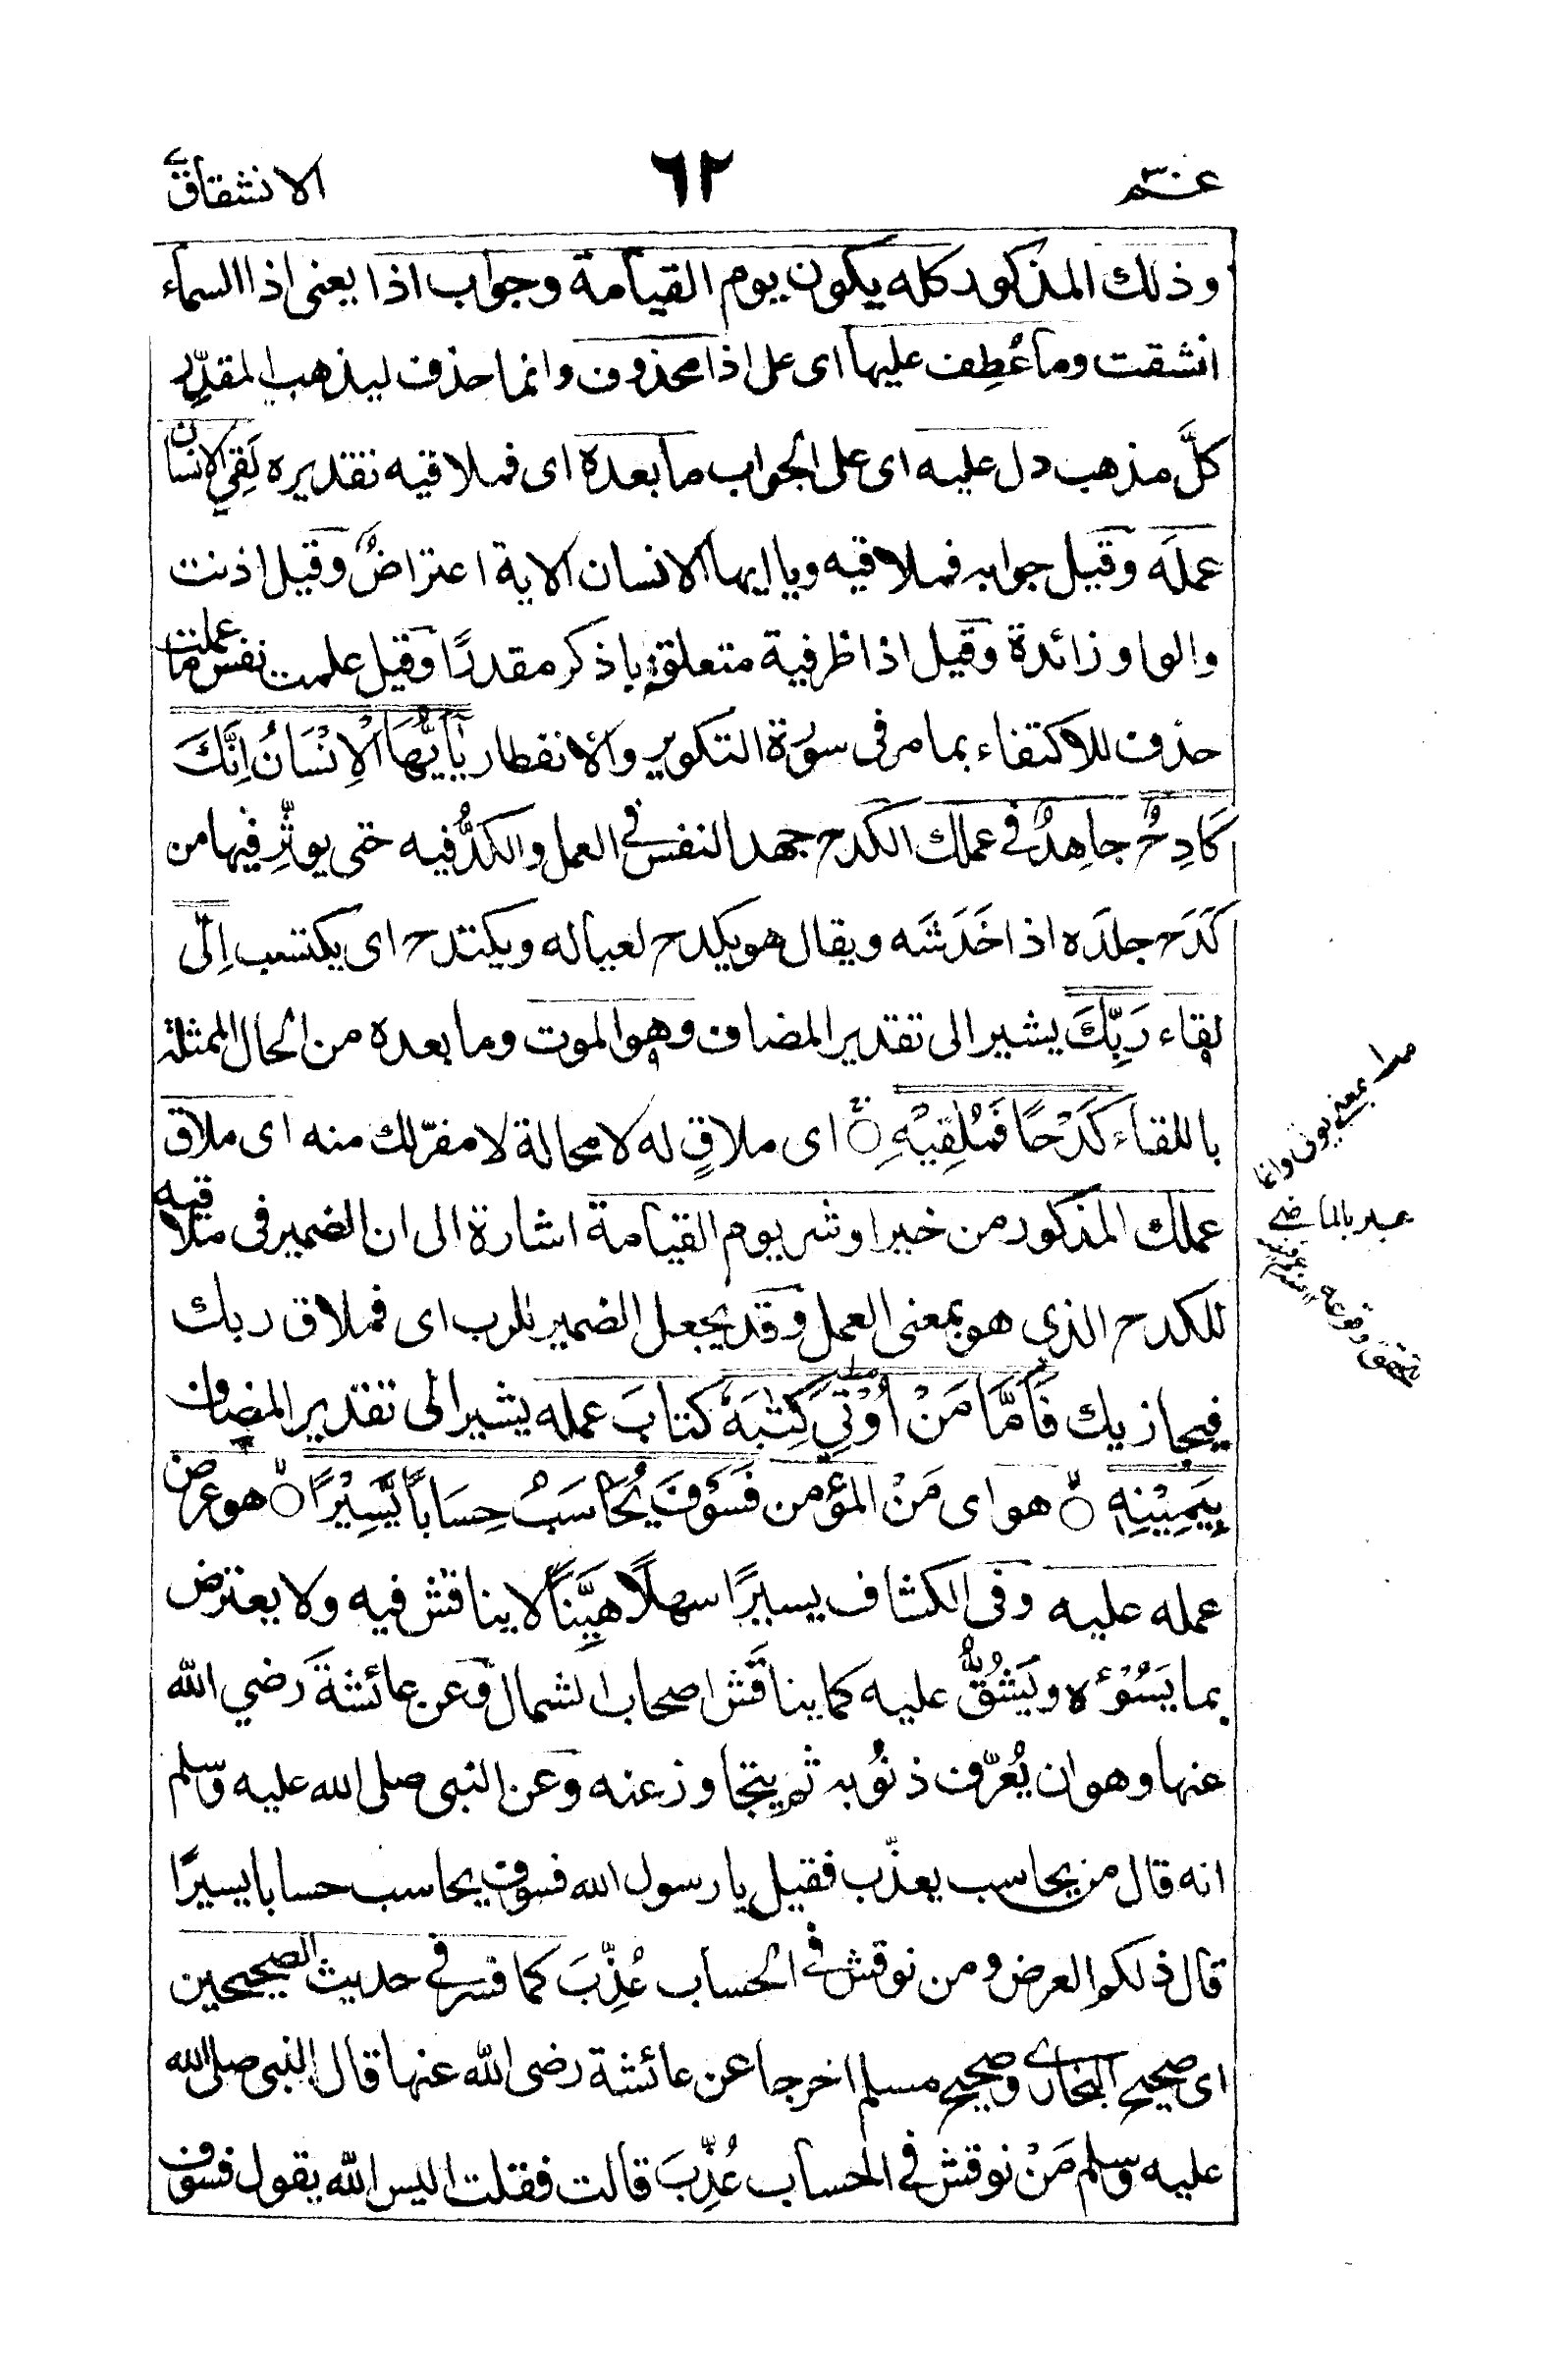 عم ٦٢ الانشقاق
وذلك المذكور كله يكون يوم القيامة وجواب اذا يعنى اذا السماء
انشقت وما عُطِف عليها اى على اذا محذوف وانما حذف ليذهب المقدِّر
كلَّ مذهب دل عليه اى على الجواب ما بعده اى فملاقيه تقديره لَقِيَ الانسان
عملَه وقيل جوابه فملاقيه ويا ايها الانسان الاية اعتراضٌ وقيل اذنت
والواو زائدة وقيل اذا ظرفية متعلقة باذكر مقدرًا وقيل علمت نفس ما عملت
حذف للاكتفاء بما مر فى سورة التكوير والانفطار يٰٓاَيُّهَا الْاِنْسَانُ اِنَّكَ
كَادِحٌ جاهِدٌ فى عملك الكدح جهد النفس فى العمل والكدُّ فيه حتى يوثِّر فيها من
كَدَح جلدَه اذا خَدَشَه ويقال هو يكدح لعياله ويكتدح اى يكتسب اِلٰى
لقاء رَبِّكَ يشير الى تقدير المضاف وهو الموت وما بعده من الحال الممثلة
باللقاء كَدْحًا فَمُلٰقِيْهِ اى ملاقٍ له لا محالة لا مفرّ لك منه اى ملاق
عملك المذكور من خير او شر يوم القيامة اشارة الى ان الضمير فى ملاقيه
للكدح الذي هو بمعنى العمل وقد يجعل الضمير للرب اى فملاق ربك
فيجازيك فَاَمَّا مَنْ اُوْتِيَ كِتٰبَهٗ كتابَ عمله يشير الى تقدير المضاف
بِيَمِيْنِهٖ هو اى مَنْ المؤمن فَسَوْفَ يُحَاسَبُ حِسَابًا يَّسِيْرًا هو عرض
عمله عليه وفى الكشاف يسيرًا سهلًا هَيِّنًا لا يناقش فيه ولا يعترض
بما يَسُوْءُه ويَشُقُّ عليه كما يناقَش اصحاب الشمال وعن عائشةَ رضي الله
عنها وهو ان يُعرّف ذنُوبه ثم يتجاوز عنه وعن النبى صلى الله عليه وسلم
انه قال من يحاسب يعذّب فقيل يا رسول الله فسوف يحاسب حسابا يسيرًا
قال ذلكم العرض ومن نوقش فى الحساب عُذِّبَ كما فسر فى حديث الصحيحين
اى صحيح البخارى وصحيح مسلم اخرجا عن عائشة رضى الله عنها قال النبى صلى الله
عليه وسلم مَنْ نوقش فى الحساب عُذِّبَ قالت فقلت اليس الله يقول فسوف
بمعنى وانما
عبر بالماضى
لتحقق وقوعه